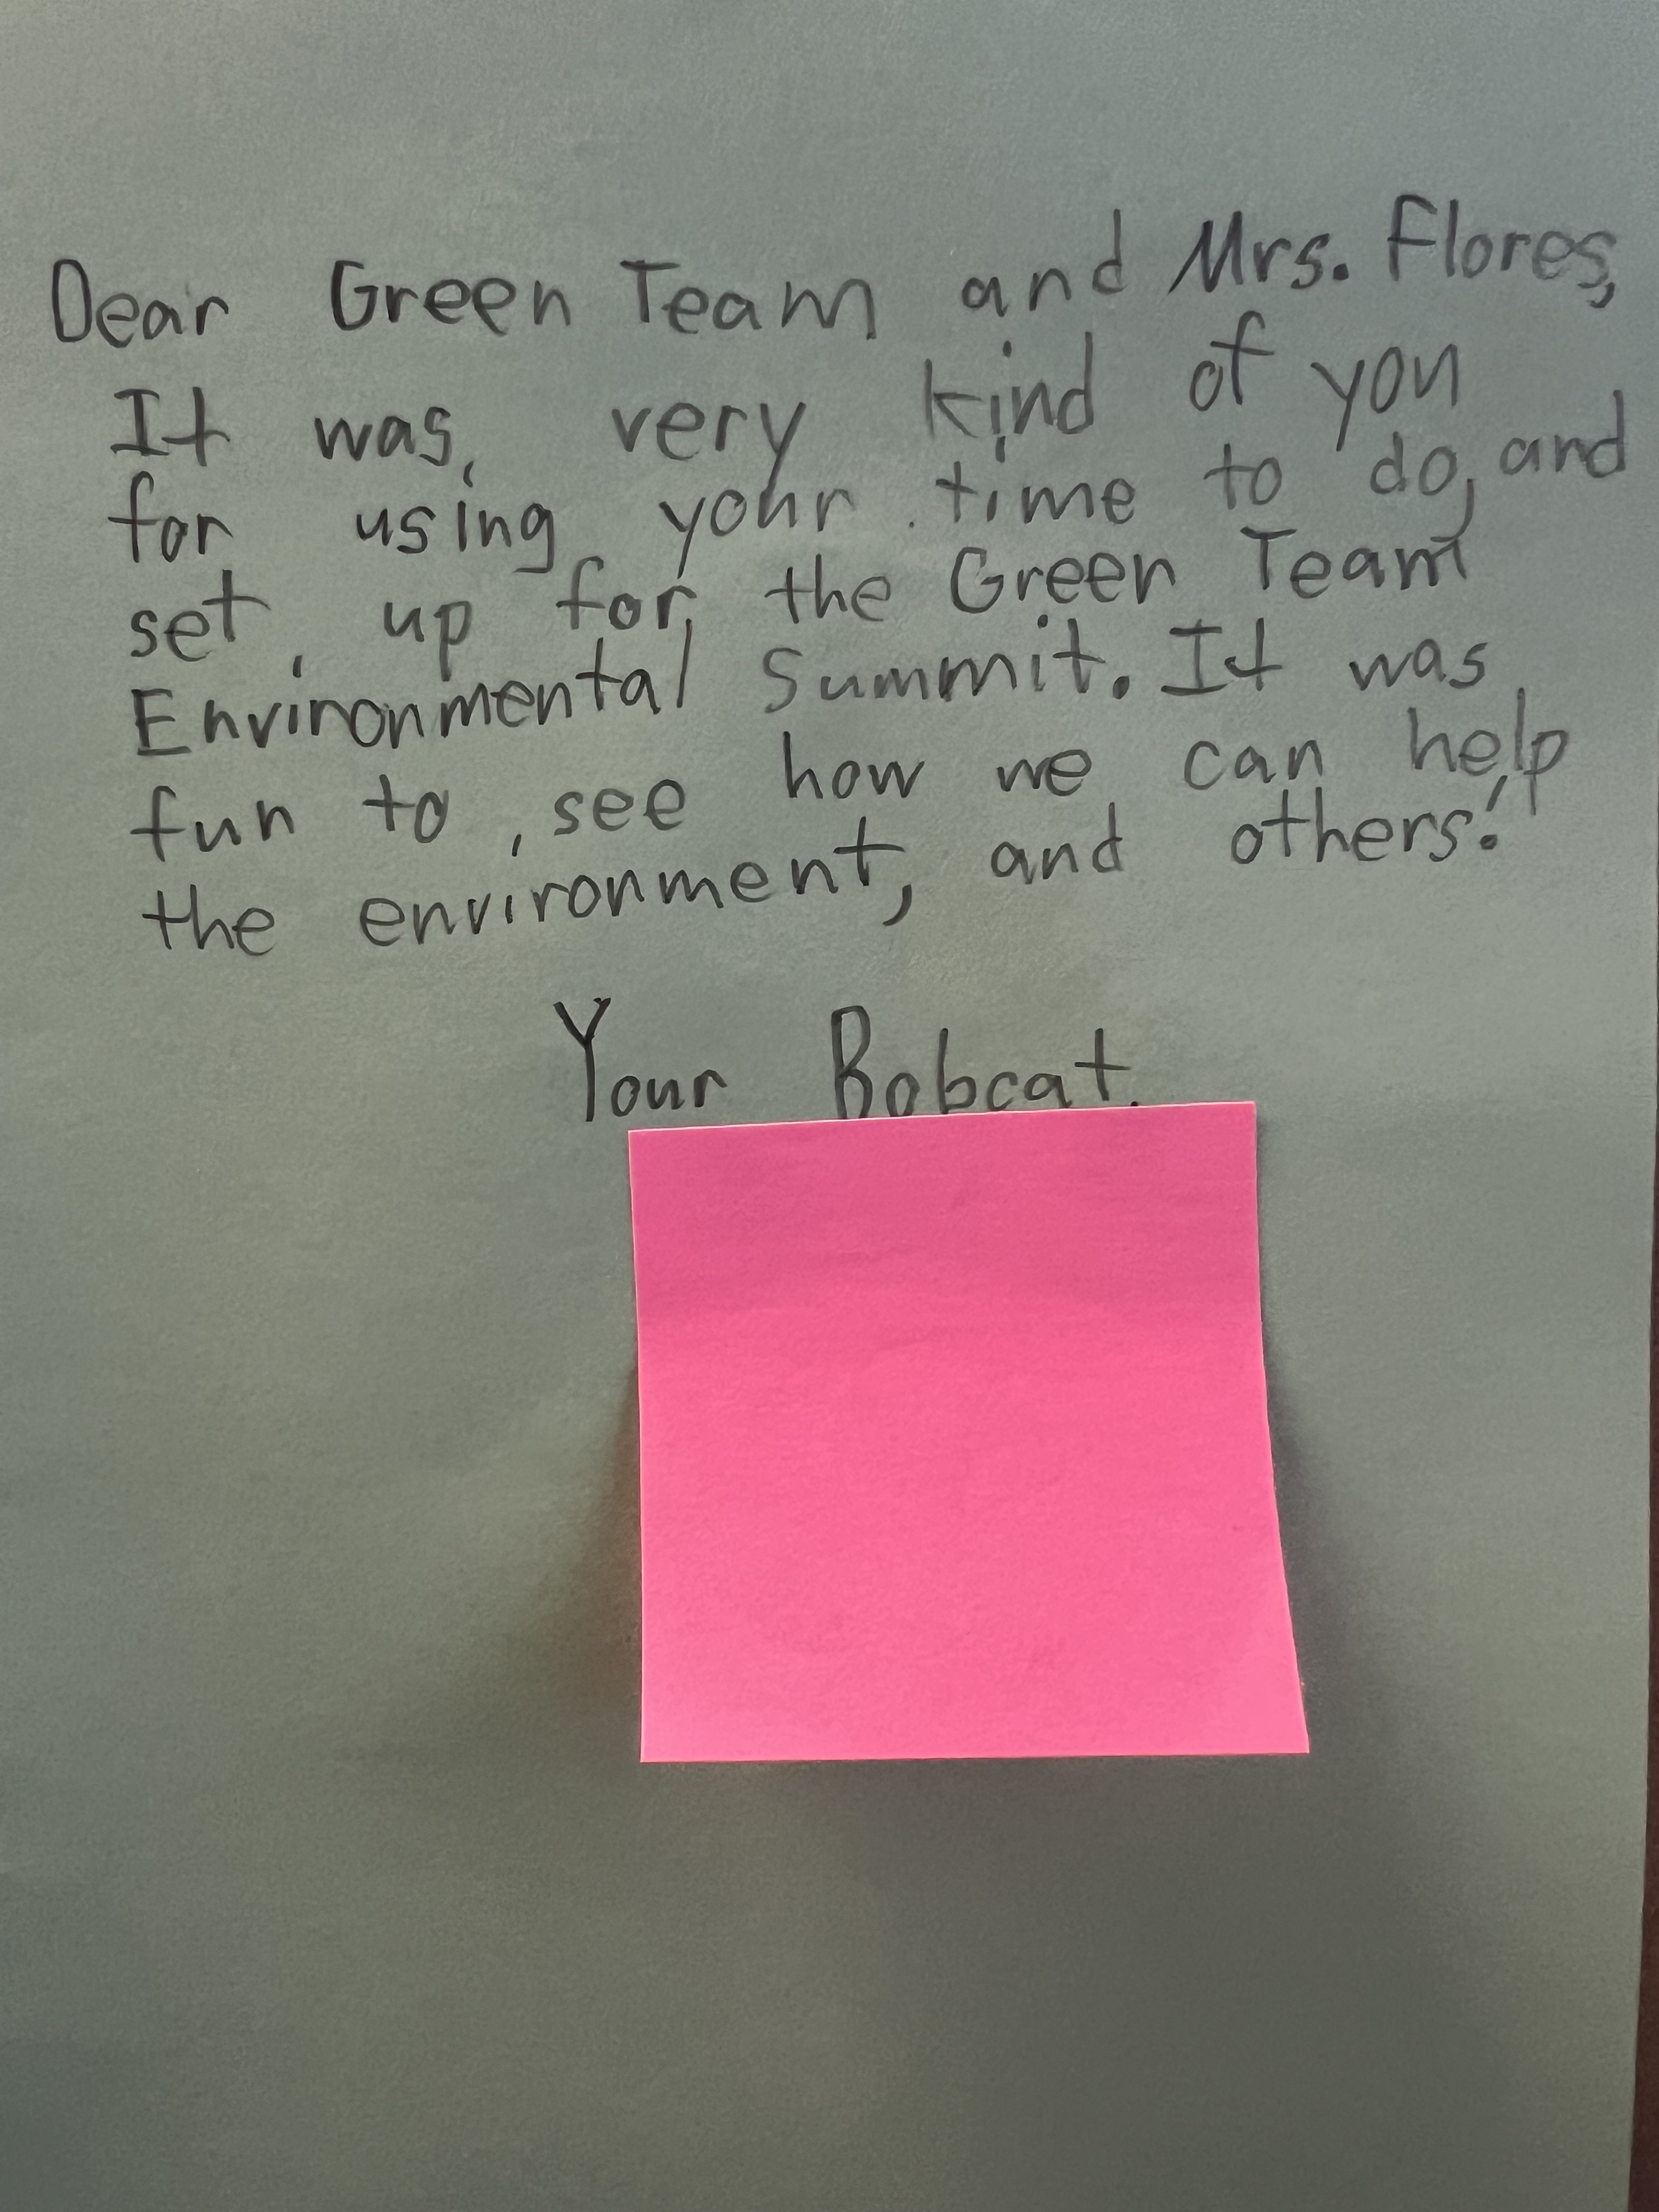 Dear Green Team and Mrs. Flores,
It was very kind of you
for using your time to do, and
set up for the Green Team
Environmental Summit. It was
fun to see how we can help
the environment, and others!
Your Bobcat,